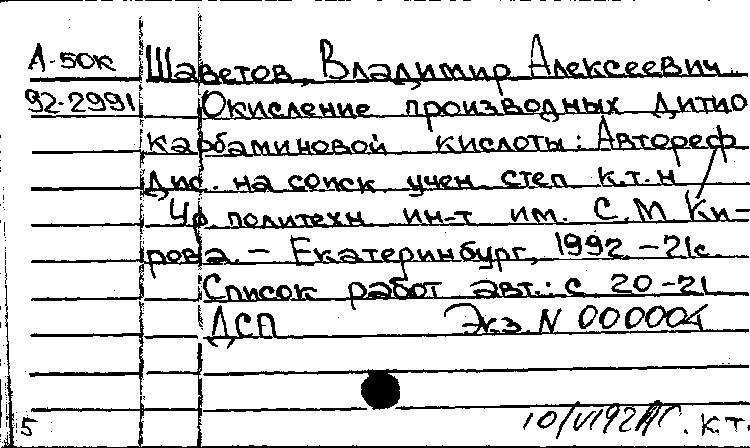 А-50к Шаветов, Владимир Алексеевич.
92-2991 Окисление производных дитио
карбаминовой кислоты: Автореф
дис. на соиск учен. степ к.т.н /
Ур. политехн ин-т им. С.М Ки-
рова. - Екатеринбург, 1992 - 21с.
Список работ авт.: с 20-21
ДСП Экз. N 000004
5 10/VI92 к.т.